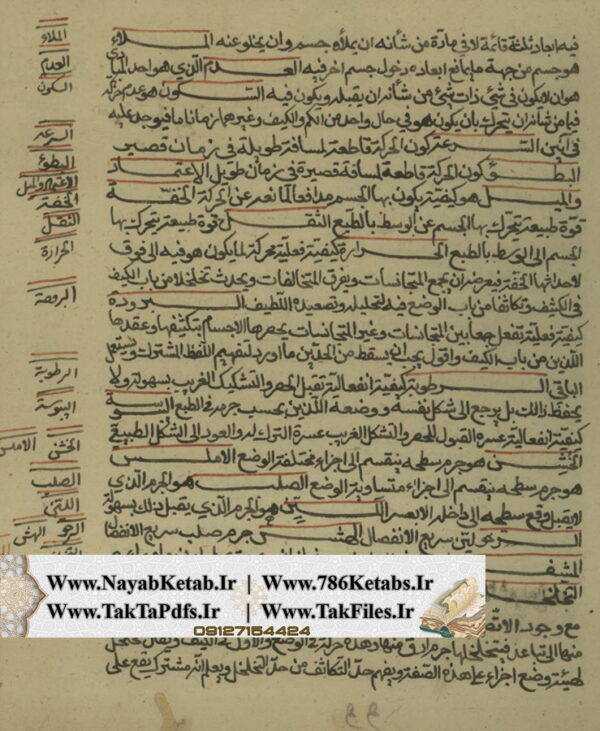 فيه ابعاد ثلثة قائمة لا في مادة من شأنه ان يملأه جسم وان يخلو عنه الملاء
هو جسم من جهة ما يمانع ابعاده دخول جسم اخر فيه العدم الذي هو احد المبادي
هو ان لا يكون في شيء ذات شيء من شأنه ان يقبله ويكون فيه السكون هو عدم حركة
فيما من شأنه ان يتحرك بان يكون هو في حال واحد من الكم والكيف وغيرها زمانا ما فيوجد عليه
في آنين السرعة كون الحركة قاطعة لمسافة طويلة في زمان قصير
البطؤ كون الحركة قاطعة لمسافة قصيرة في زمان طويل الاعتماد
والميل هو كيفية يكون بها الجسم مدافعا لما يمنعه عن الحركة الخفة
قوة طبيعية يتحرك بها الجسم عن الوسط بالطبع الثقل قوة طبيعية يتحرك بها
الجسم الى الوسط بالطبع الحرارة كيفية فعلية محركة لما يكون هو فيه الى فوق
لاحداثها الخفة فيعرض ان يجمع المتجانسات ويفرق المتخالفات ويحدث تخلخلا من باب الكيف
في الكثيف وتكاثفا من باب الوضع فيه لتحليله وتصعيده اللطيف البرودة
كيفية فعلية تفعل جمعا بين المتجانسات وغير المتجانسات بحصرها الاجسام بتكثيفها وعقدها
اللذين من باب الكيف واقول يجب ان يسقط من الحدين ما اورد لتفهيم اللفظ المشترك ويستعمل
الباقي الرطوبة كيفية انفعالية تقبل الحصر والتشكيل الغريب بسهولة ولا
يحفظ ذلك بل يرجع الى شكل نفسه ووضعه اللذين بحسب حركة جرمه في الطبع اليبوسة
كيفية انفعالية عسرة القبول للحصر والتشكل الغريب عسرة الترك له والعود الى الشكل الطبيعي
الخشن هو جرم سطحه ينقسم الى اجزاء مختلفة الوضع الاملس
هو جرم سطحه ينقسم الى اجزاء متساوية الوضع الصلب هو الجرم الذي
لا يقبل دفع سطحه الى داخله الا بعسر اللين هو الجرم الذي يقبل ذلك بسهولة
الرخو لين سريع الانفصال الهش جرم صلب سريع الانفصال
المشف
التخلخل
مع وجود
منها الى تباعد
لهيئة وضع اجزاء على هذه الصفة ويفهم حد التكاثف من حد التخلخل ويعلم انه مشترك يقع على
الملاء
العدم
السكون
السرعة
البطؤ
الاعتماد والميل
الخفة
الثقل
الحرارة
البرودة
الرطوبة
اليبوسة
الخشن الاملس
الصلب
اللين
الرخو الهش
Www.NayabKetab.Ir | Www.786Ketabs.Ir
Www.TakTaPdfs.Ir | Www.TakFiles.Ir
09127154424